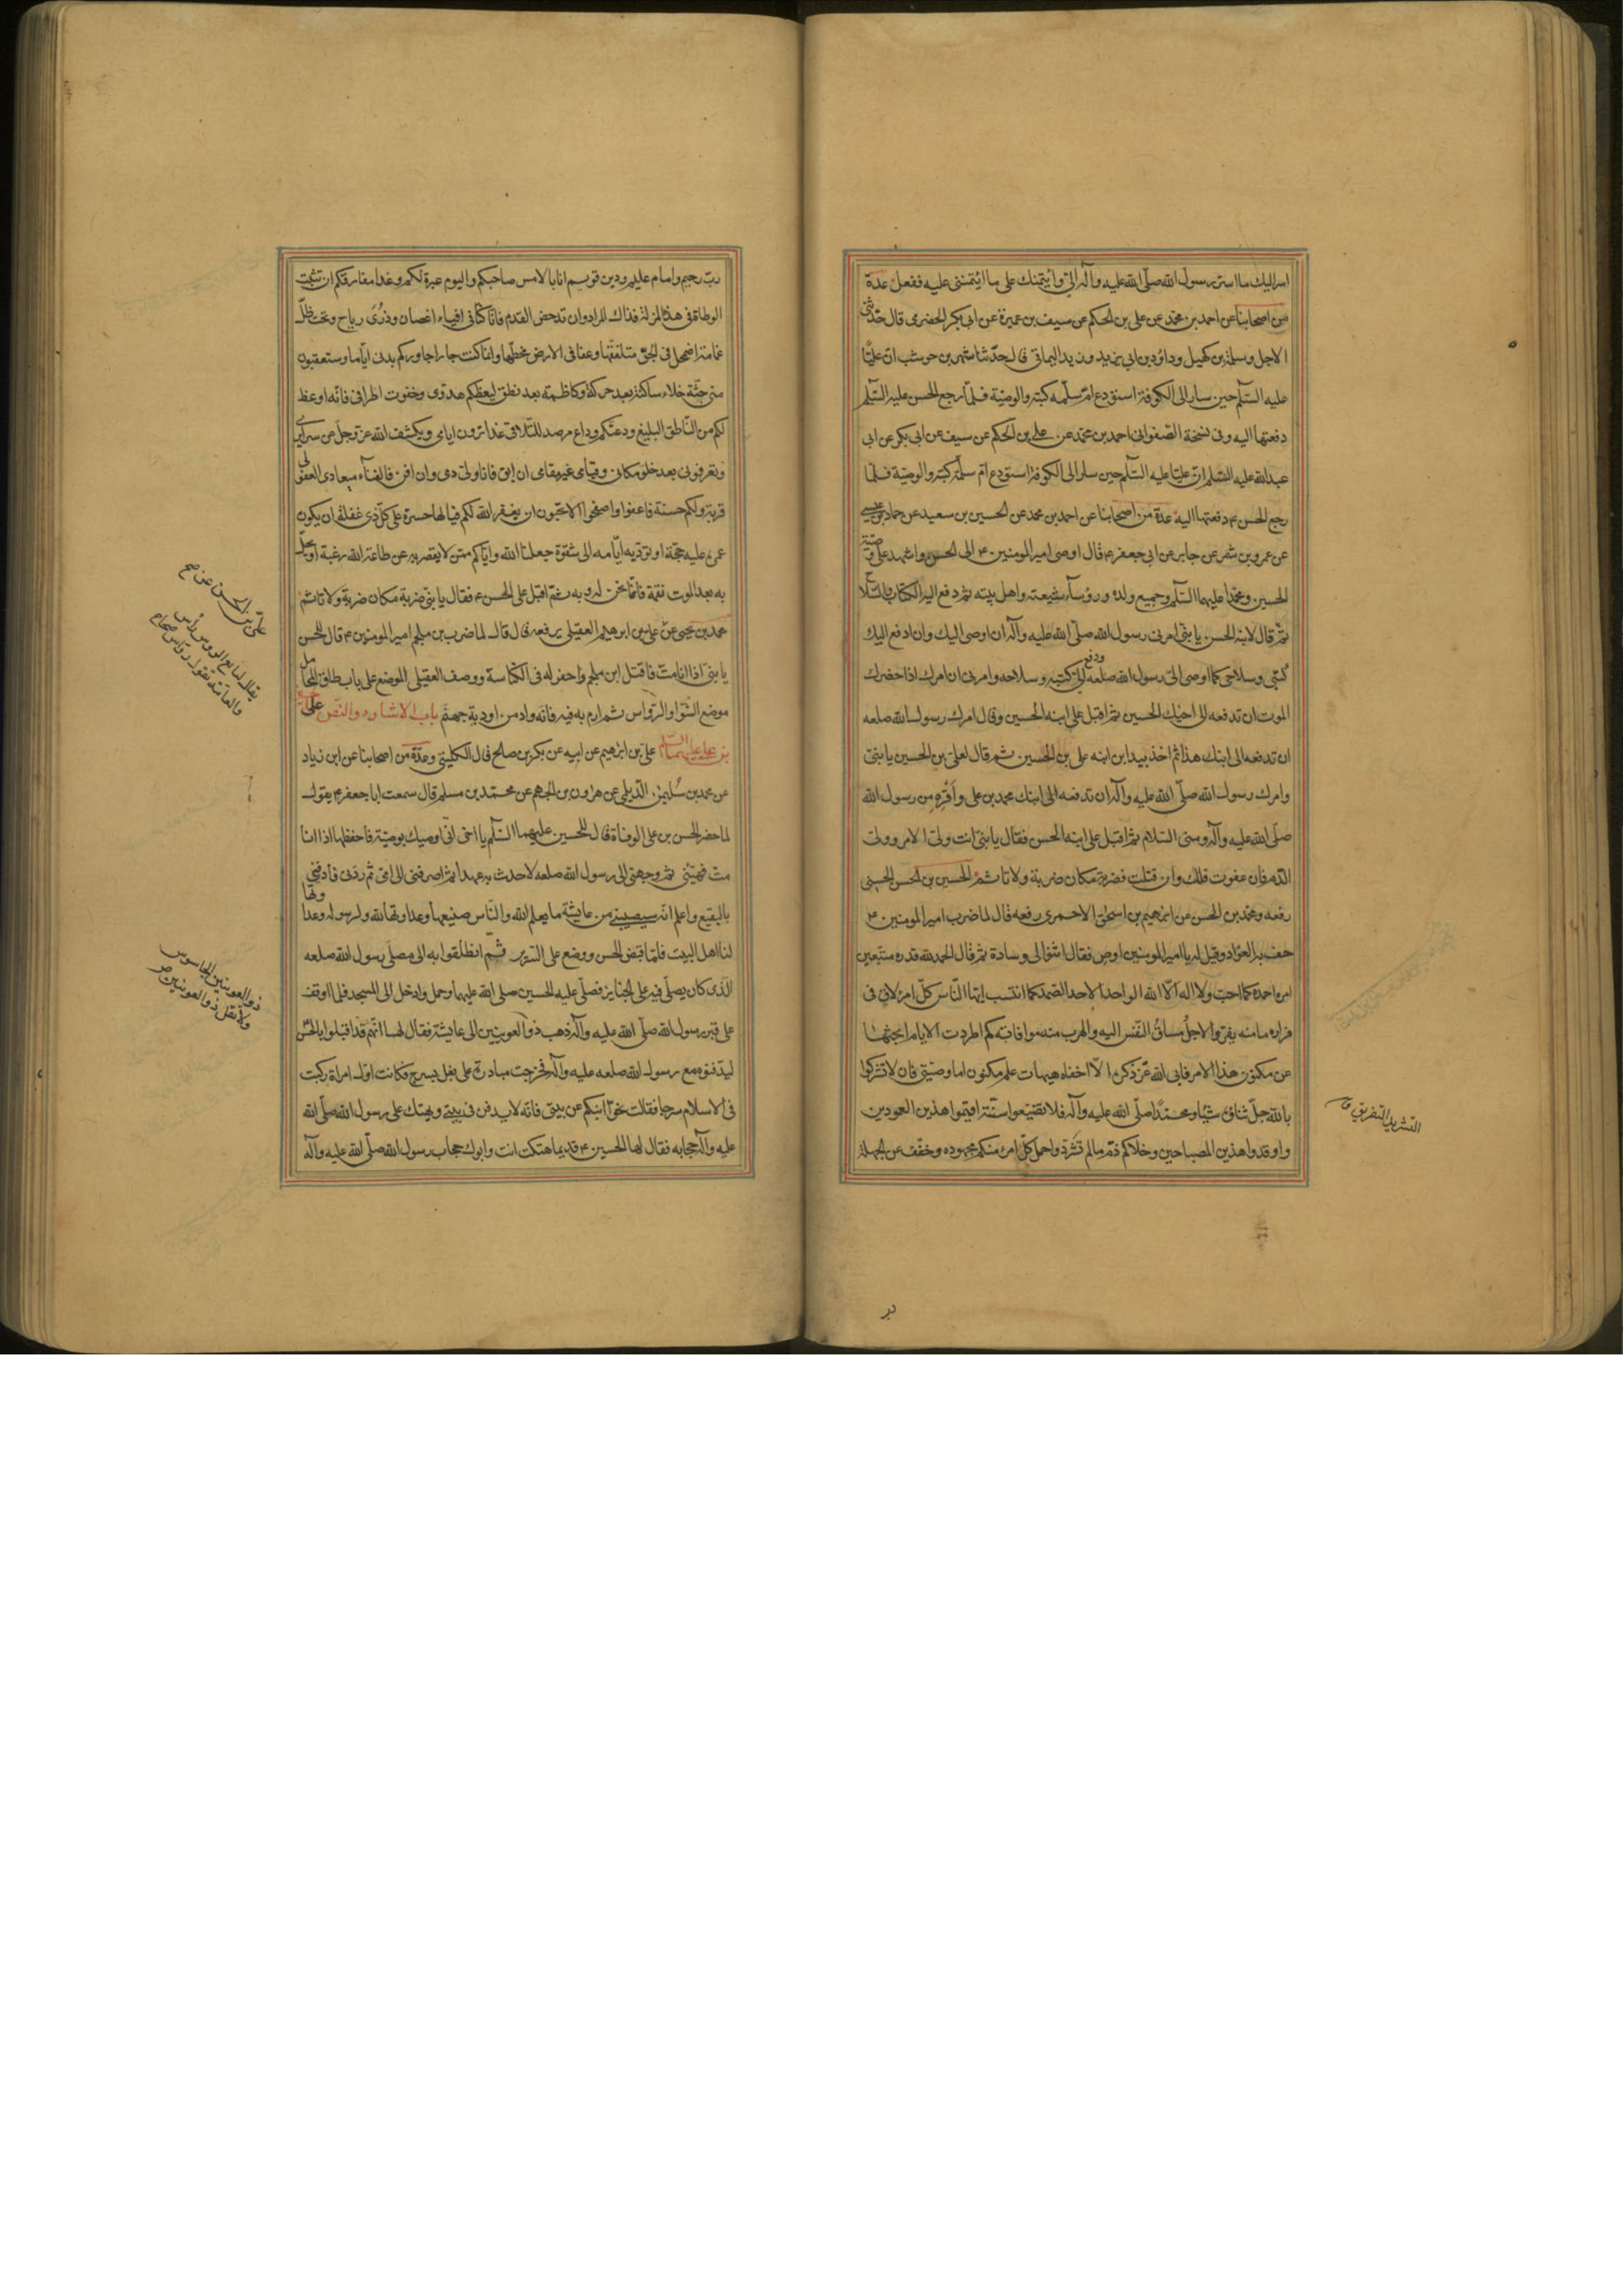 اسرّ اليك ما اسرّ رسول الله صلّى الله عليه وآله الىّ وائتمنك على ما ائتمننى عليه ففعل عدة
من اصحابنا عن احمد بن محمّد عن على بن الحكم عن سيف بن عميرة عن ابى بكر الحضرمى قال حدّثنى
الاجلح وسلمة بن كهيل وداود بن ابى يزيد وزيد اليمانى قال حدّثنا شهر بن حوشب انّ عليّا
عليه السّلم حين سار الى الكوفة استودع امّ سلمه كتبه والوصيّة فلمّا رجع الحسن عليه السّلم
دفعتها اليه وفى نسخة الصّفوانى احمد بن محمّد عن على بن الحكم عن سيف عن ابى بكر عن ابى
عبد الله عليه السّلم انّ عليّا عليه السّلم حين سار الى الكوفة استودع امّ سلمة كتبه والوصيّة فلمّا
رجع الحسن ع دفعتها اليه عدة من اصحابنا عن احمد بن محمد عن الحسين بن سعيد عن حماد بن عيسى
عن عمرو بن شمر عن جابر عن ابى جعفر ع قال اوصى امير المومنين ع الى الحسن واشهد على وصيّته
الحسين ومحمّدا عليهما السّلم وجميع ولده ورؤسآء شيعته واهل بيته ثم دفع اليه الكتاب والسّلاح
ثمّ قال لابنه الحسن يا بنىّ امرنى رسول الله صلّى الله عليه وآله ان اوصى اليك وان ادفع اليك
كتبى وسلاحى كما اوصى الىّ رسول الله صلعه ودفع الىّ كتبه وسلاحه وامرنى ان امرك اذا حضرك
الموت ان تدفعه الى اخيك الحسين ثمّ اقبل على ابنه الحسين وقال امرك رسول الله صلعه
ان تدفعه الى ابنك هذا ثم اخذ بيد ابن ابنه على بن الحسين ثم قال لعلىّ بن الحسين يا بنىّ
وامرك رسول الله صلّى الله عليه وآله ان تدفعه الى ابنك محمد بن على واقره من رسول الله
صلّى الله عليه وآله ومنى السلام ثمّ اقبل على ابنه الحسن فقال يا بنىّ انت ولىّ الامر وولىّ
الدّم فان عفوت فلك وان قتلت فضربة مكان ضربة ولا تاثم الحسين بن الحسن الحسينى
رفعه ومحمّد بن الحسن عن ابرهيم بن اسحق الاحمرى رفعه قال لما ضرب امير المومنين ع
حف به العوّاد وقيل له يا امير المومنين اوص فقال اثنوا لى وسادة ثم قال الحمد لله قدره متبعين
امره احمده كما احبّ ولا اله الّا الله الواحد الاحد الصّمد كما انتسب ايّها النّاس كلّ امرئ لاق فى
فراره ما منه يفرّ والاجل مساق النّفس اليه والهرب منه موافاته كم اطردت الايام ابحثها
عن مكنون هذا الامر فابى الله عزّ ذكره الّا اخفاه هيهات علم مكنون اما وصيّتى فان لا تشركوا
بالله جلّ ثناؤه شيئا ومحمّدا صلّى الله عليه وآله فلا تضيّعوا سنّته اقيموا هذين العمودين
واوقدوا هذين المصباحين وخلاكم ذمّ ما لم تشردوا حمل كلّ امرئ منكم مجهوده وخفّف عن الجهلة
التشريد التفريق ق
ربّ رحيم وامام عليم ودين قويم انا بالامس صاحبكم واليوم عبرة لكم وغدا مفارقكم ان تثبت
الوطاة فى هذه المزلة فذاك المراد وان تدحض القدم فانّا كنّا فى افياء اغصان وذرى رياح وتحت ظلّ
غمامة اضمحل فى الجوّ متلفقها وعفا فى الارض مخطّها وانّما كنت جارا جاوركم بدنى ايّاما وستعقبون
منى جثّة خلاء ساكنة بعد حركة وكاظمة بعد نطق ليعظكم هدوّى وخفوت اطرافى فانّه اوعظ
لكم من النّاطق البليغ ودعتكم وداع مرصد للتّلاقى غدا ترون ايامى ويكشف الله عزّ وجلّ عن سرايرى
وتعرفونى بعد خلوّ مكانى وقيامى غير مقامى ان ابق فانا ولىّ دمى وان افن فالفنآء ميعادى العفو لى
قربة ولكم حسنة فاعفوا واصفحوا الا تحبّون ان يغفر الله لكم فيا لها حسرة على كلّ ذى غفلة ان يكون
عمره عليه حجّة او تؤدّيه ايّامه الى شقوة جعلنا الله وايّاكم ممّن لا يقصر به عن طاعة الله رغبة او تحلّ
به بعد الموت نقمة فانّما نحن له وبه ثمّ اقبل على الحسن ع فقال يا بنىّ ضربة مكان ضربة ولا تاثم
محمد بن يحيى عن على بن ابرهيم العقيلى يرفعه قال قال لما ضرب بن ملجم امير المومنين ع قال للحسن
يا بنىّ اذا انا متّ فاقتل ابن ملجم واحفر له فى الكناسة ووصف العقيلى الموضع على باب طاق المحامل
موضع الشوّا والروّاس ثم ارم به فيه فانّه واد من اودية جهنّم باب الاشاره والنصّ على
بن على عليهما السّلم على بن ابرهيم عن ابيه عن بكر بن صالح قال الكلينى وعدّة من اصحابنا عن ابن زياد
عن محمد بن سليمن الدّيلمى عن هرون بن الجهم عن محمّد بن مسلم قال سمعت ابا جعفر ع يقول
لما حضر الحسن بن على الوفاة قال للحسين عليهما السّلم يا اخى انّى اوصيك بوصيّة فاحفظها اذا انا
متّ فهيّئنى ثمّ وجهنى الى رسول الله صلعه لاحدث به عهدا ثمّ اصرفنى الى امّى ثم ردّنى فادفنّى
بالبقيع واعلم انّه سيصيبنى من عايشة ما يعلم الله والنّاس صنيعها وعداوتها لله ولرسوله وعداوتها
لنا اهل البيت فلمّا قبض الحسن ووضع على السّرير ثم انطلقوا به الى مصلّى رسول الله صلعه
الّذى كان يصلّى فيه على الجنايز فصلّى عليه الحسين صلى الله عليهما وحمل وادخل الى المسجد فلما اوقف
على قبر رسول الله صلّى الله عليه وآله ذهب ذو العوينين الى عايشة فقال لها انّهم قد اقبلوا بالحسن
ليدفنوه مع رسول الله صلعه عليه وآله فخرجت مبادرة على بغل بسرج فكانت اوّل امراة ركبت
فى الاسلام سرجا فقالت نحّوا ابنكم عن بيتى فانّه لا يدفن فى بيتى ويهتك على رسول الله صلّى الله
عليه وآله حجابه فقال لها الحسين ع قديما هتكت انت وابوك حجاب رسول الله صلّى الله عليه وآله
على بن الحسن عن صح
يقال لبائع الرووس رأس
والعامّة تقول روّاس صحاح
ذو العوينين الجاسوس
ولا تقل ذو العوينتين ص